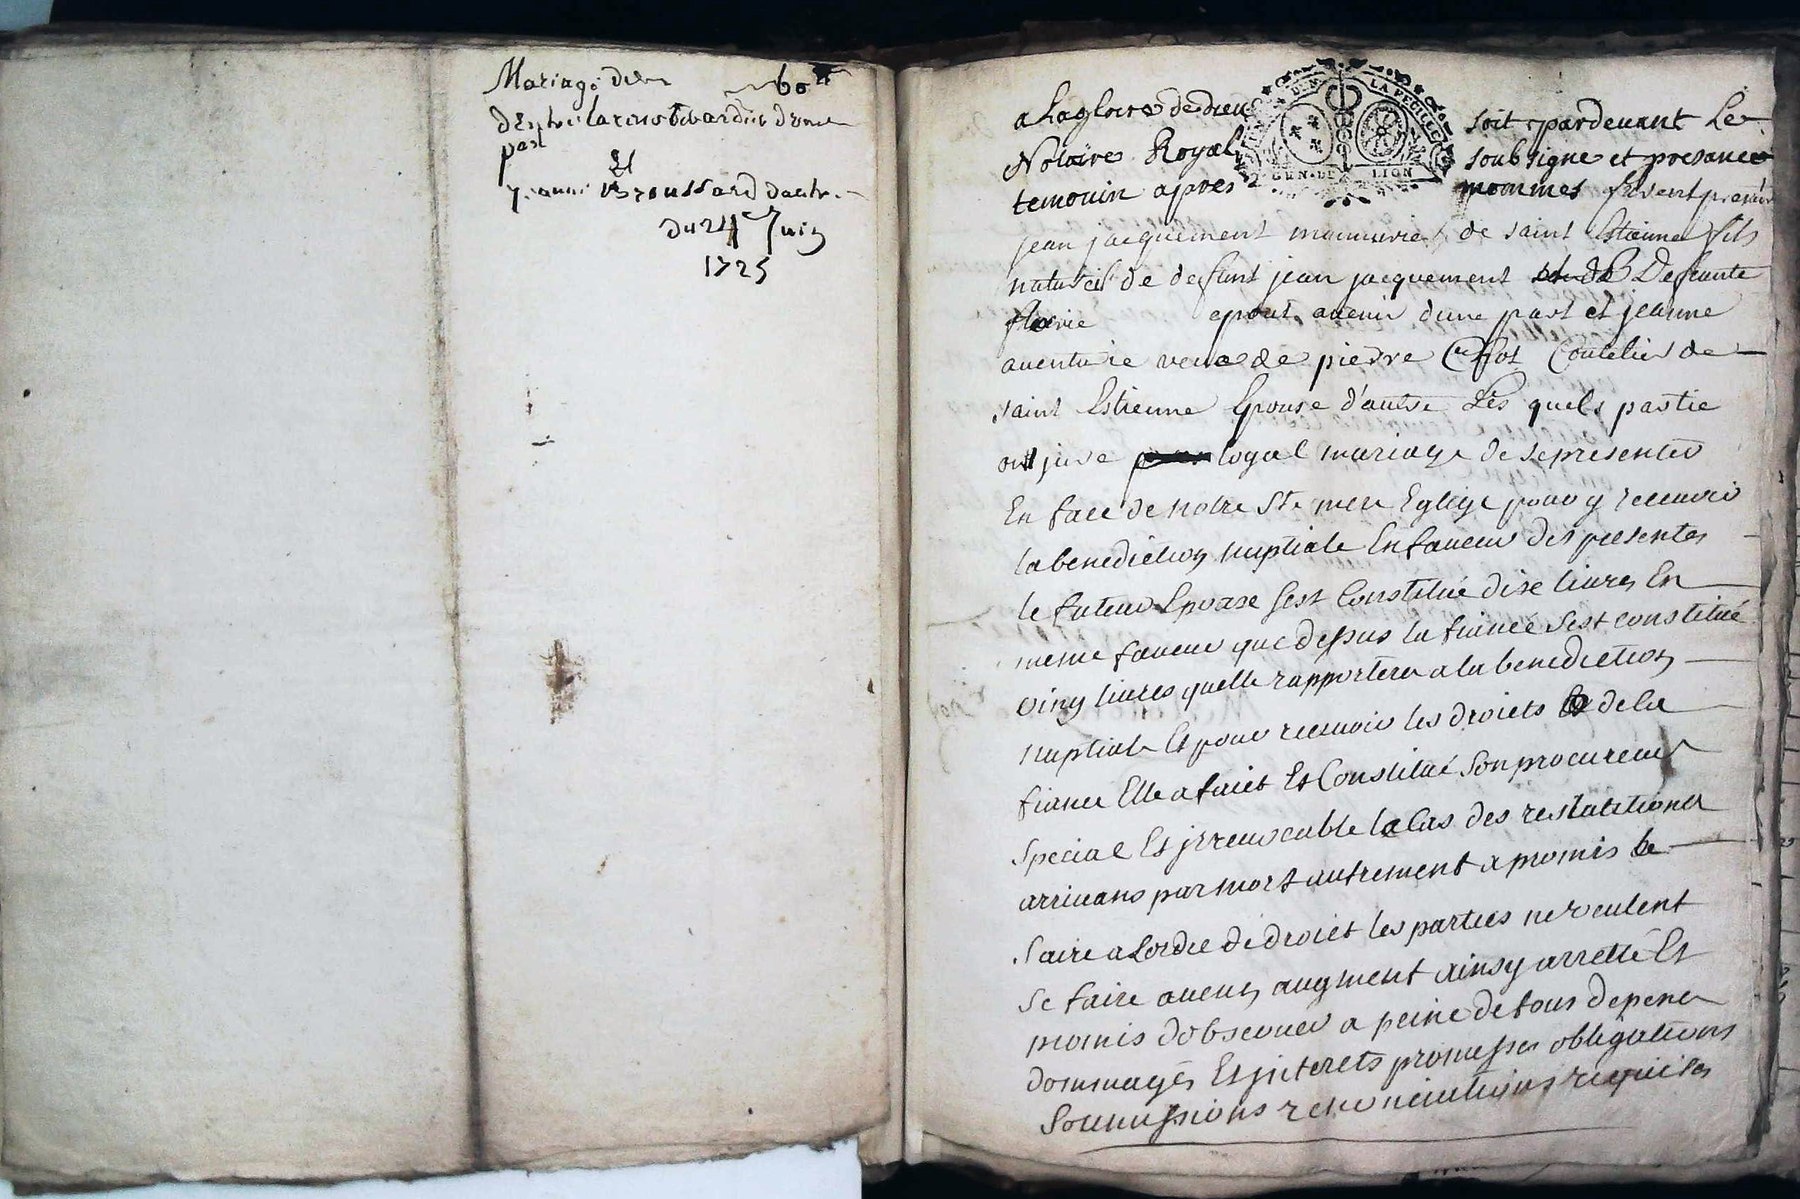 Mariage de 60
d'Entre
part
Et
anne Broussard dautre
du 24 Juin
1725
a La gloire de dieu soit pardevant Le
Notaire Royal soubsigne et presance
temoin apres nommes furent
jean jacquement de saint Estienne fils
naturel de defunt jean jacquement Defunte
epoux avenir dune part et jeanne
aventurie veuve de pierre Coutelier de
saint Estienne Epouse d'autre Les quels partie
ont jure loyal mariage de se presenter
En face de notre Ste mere Eglize pour y recevoir
la benediction nuptiale En faveur des presentes
le futeur Epoux sest Constitué dixe livres En
meme faveur que dessus la fiancée sest constitué
ving livres quelle rapportera a la benediction
nuptiale Et pour recevoir les droiets de la
fiancee Elle a faict Et Constitué son procureur
special Et jrrevocable le Cas des restitutions
arrivans par mort autrement a promis le
faire a Lordre de droict les parties ne veulent
se faire aucun augment ainsy arretté Et
promis dobserver a peine de tous depens
dommages Et jnterets promesses obligations
Soumissions renonciations requises
GEN. DE LION
LA FEUILLE